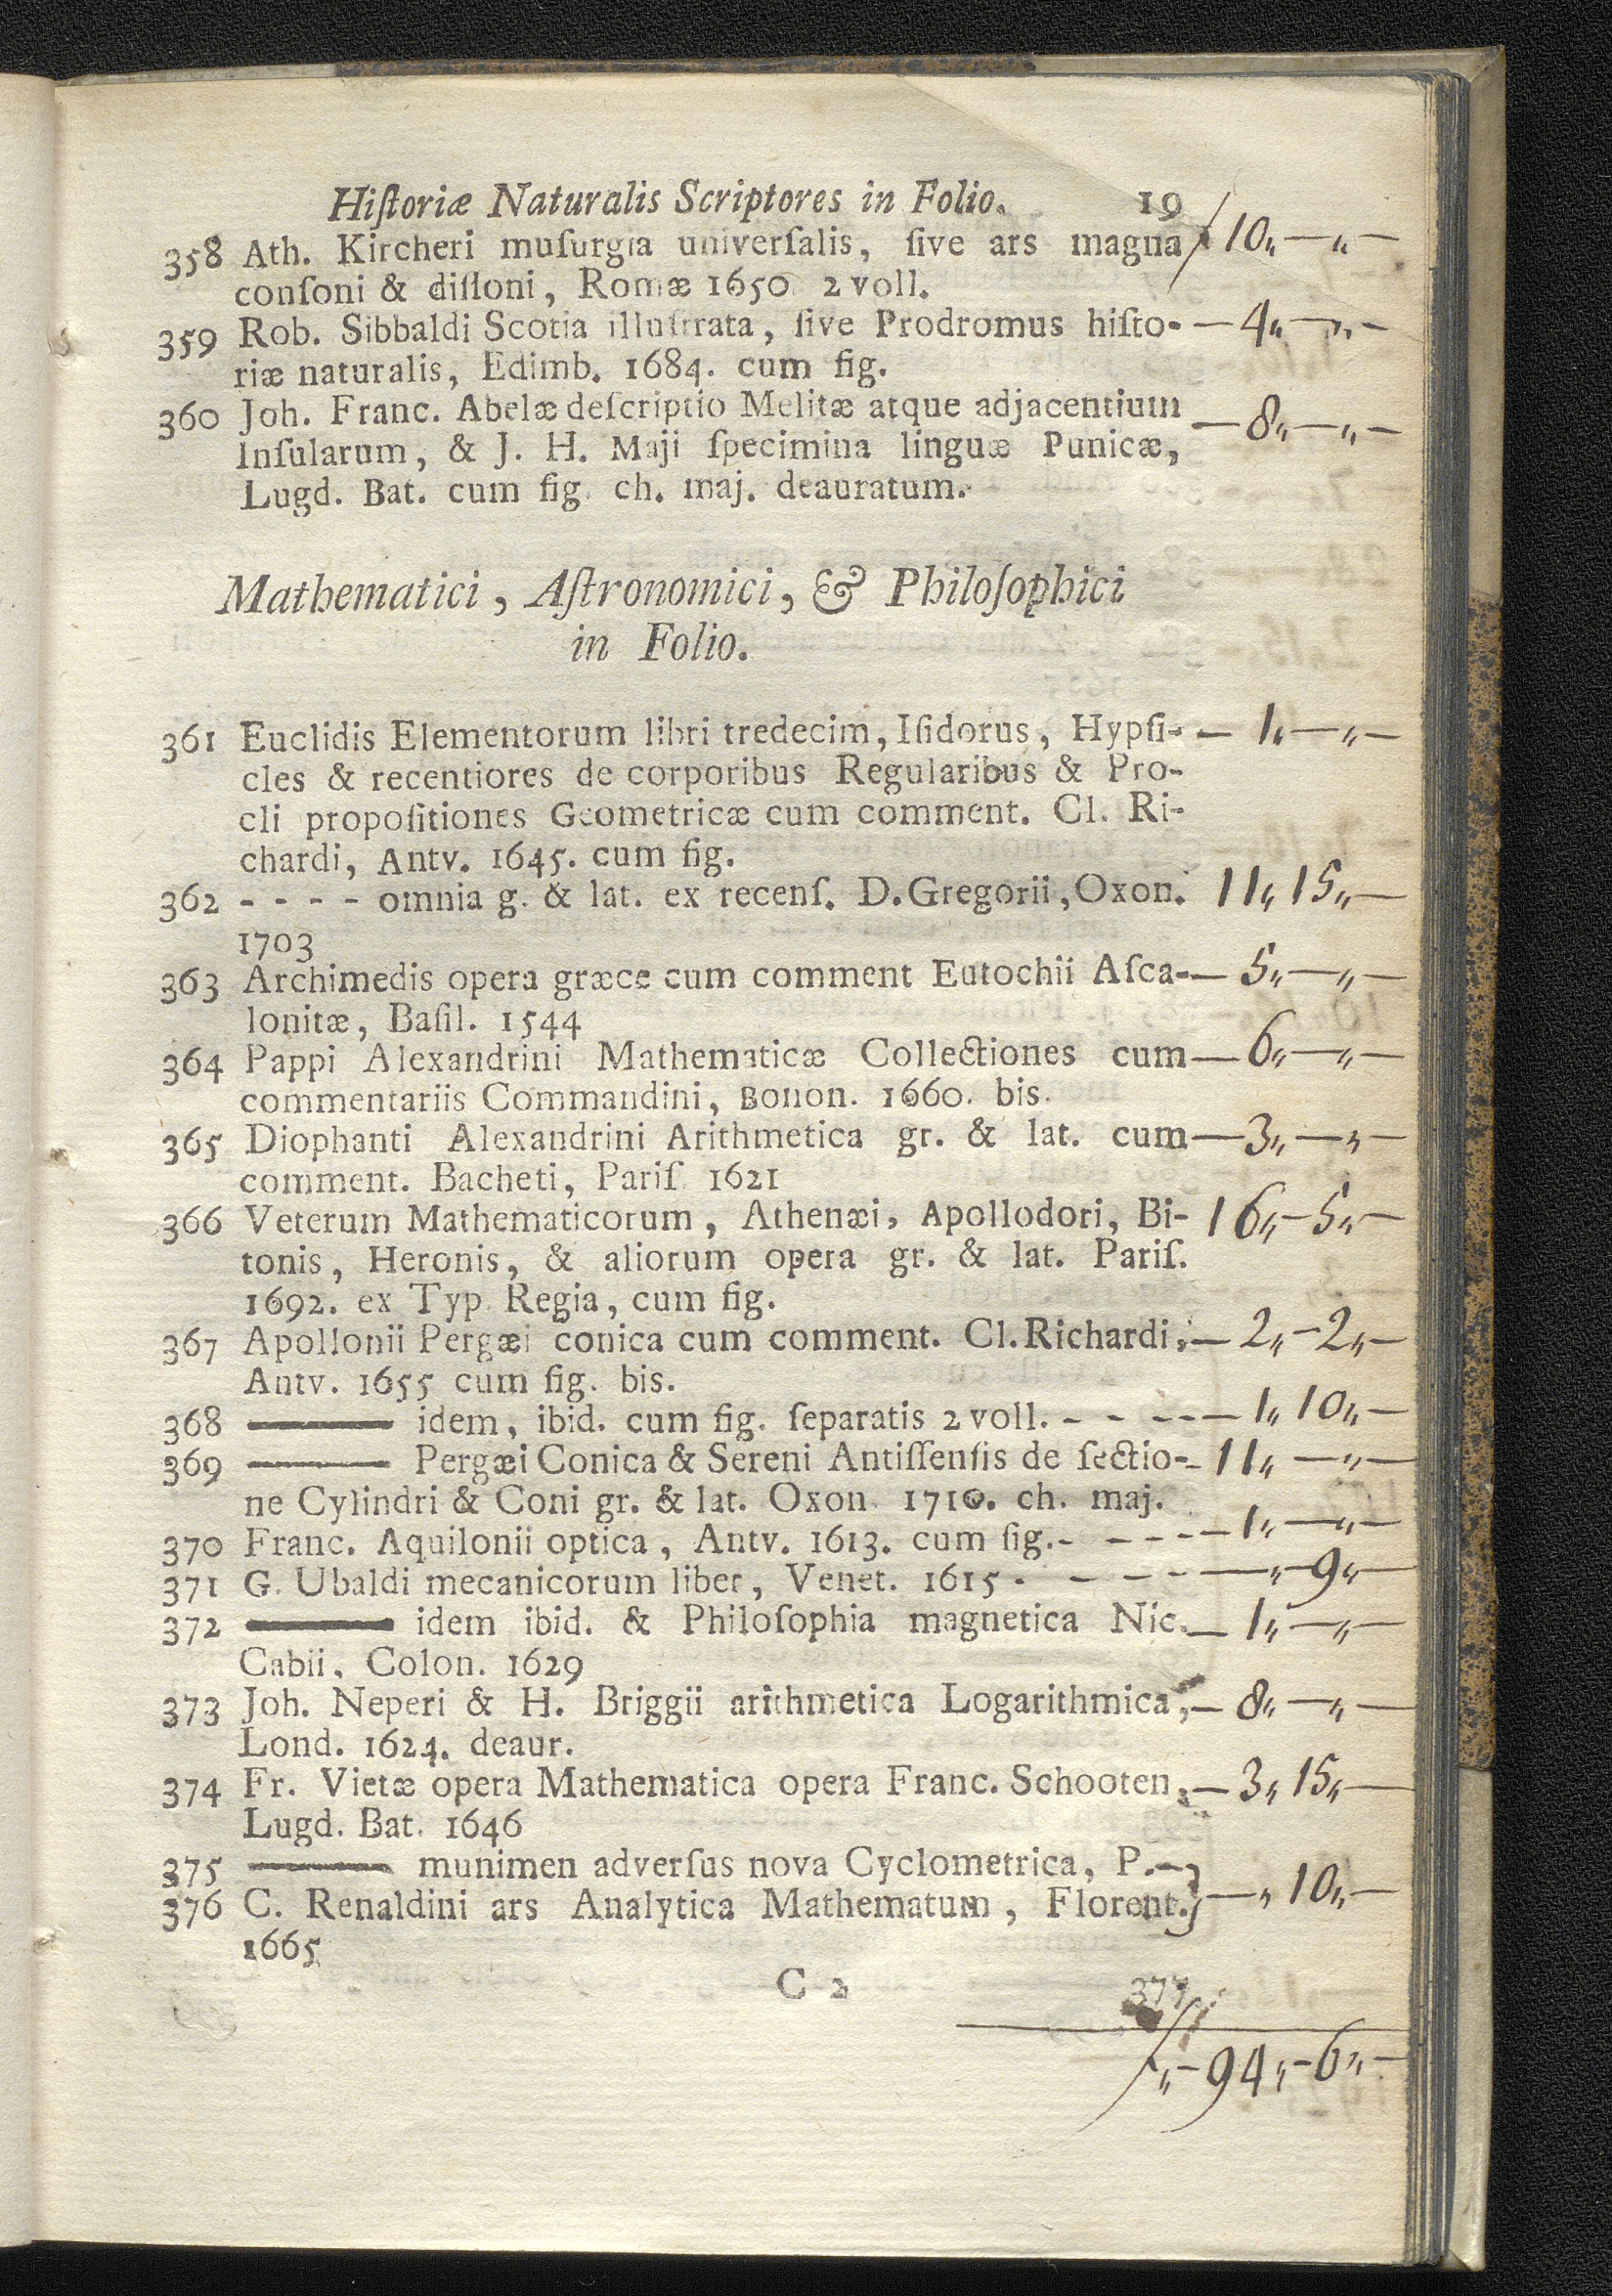 Hiſtoriæ Naturalis Scriptores in Folio. 19
358 Ath. Kircheri muſurgia univerſalis, ſive ars magna ƒ 10„—„—
conſoni & diſſoni, Romæ 1650 2 voll.
359 Rob. Sibbaldi Scotia illuſtrata, ſive Prodromus hiſto- — 4„—„—
riæ naturalis, Edimb. 1684. cum fig.
360 Joh. Franc. Abelæ deſcriptio Melitæ atque adjacentium — 8„—„—
Inſularum, & J. H. Maji ſpecimina linguæ Punicæ,
Lugd. Bat. cum fig. ch. maj. deauratum.
Mathematici, Aſtronomici, & Philoſophici
in Folio.
361 Euclidis Elementorum libri tredecim, Iſidorus, Hypſi- — 1„—„—
cles & recentiores de corporibus Regularibus & Pro-
cli propoſitiones Geometricæ cum comment. Cl. Ri-
chardi, Antv. 1645. cum fig.
362 - - - - omnia g. & lat. ex recenſ. D. Gregorii, Oxon. 11„15„—
1703
363 Archimedis opera græce cum comment Eutochii Aſca- — 5„—„—
lonitæ, Baſil. 1544
364 Pappi Alexandrini Mathematicæ Collectiones cum — 6„—„—
commentariis Commandini, Bonon. 1660. bis.
365 Diophanti Alexandrini Arithmetica gr. & lat. cum — 3„—„—
comment. Bacheti, Pariſ. 1621
366 Veterum Mathematicorum, Athenæi, Apollodori, Bi- 16„—5„—
tonis, Heronis, & aliorum opera gr. & lat. Pariſ.
1692. ex Typ. Regia, cum fig.
367 Apollonii Pergæi conica cum comment. Cl. Richardi, — 2„—2„—
Antv. 1655 cum fig. bis.
368 ——— idem, ibid. cum fig. ſeparatis 2 voll. - - - - — 1„10„—
369 ——— Pergæi Conica & Sereni Antiſſenſis de ſectio- 11„—„—
ne Cylindri & Coni gr. & lat. Oxon. 1710. ch. maj.
370 Franc. Aquilonii optica, Antv. 1613. cum fig. - - - - — 1„—„—
371 G. Ubaldi mecanicorum liber, Venet. 1615 - - - - —„—9„—
372 ——— idem ibid. & Philoſophia magnetica Nic. — 1„—„—
Cabii, Colon. 1629
373 Joh. Neperi & H. Briggii arithmetica Logarithmica, — 8„—„—
Lond. 1624. deaur.
374 Fr. Vietæ opera Mathematica opera Franc. Schooten, — 3„15„—
Lugd. Bat. 1646
375 ——— munimen adverſus nova Cyclometrica, P. —}
376 C. Renaldini ars Analytica Mathematum, Florent. } —„10„—
1665
C 2
377
ƒ„—94„—6„—